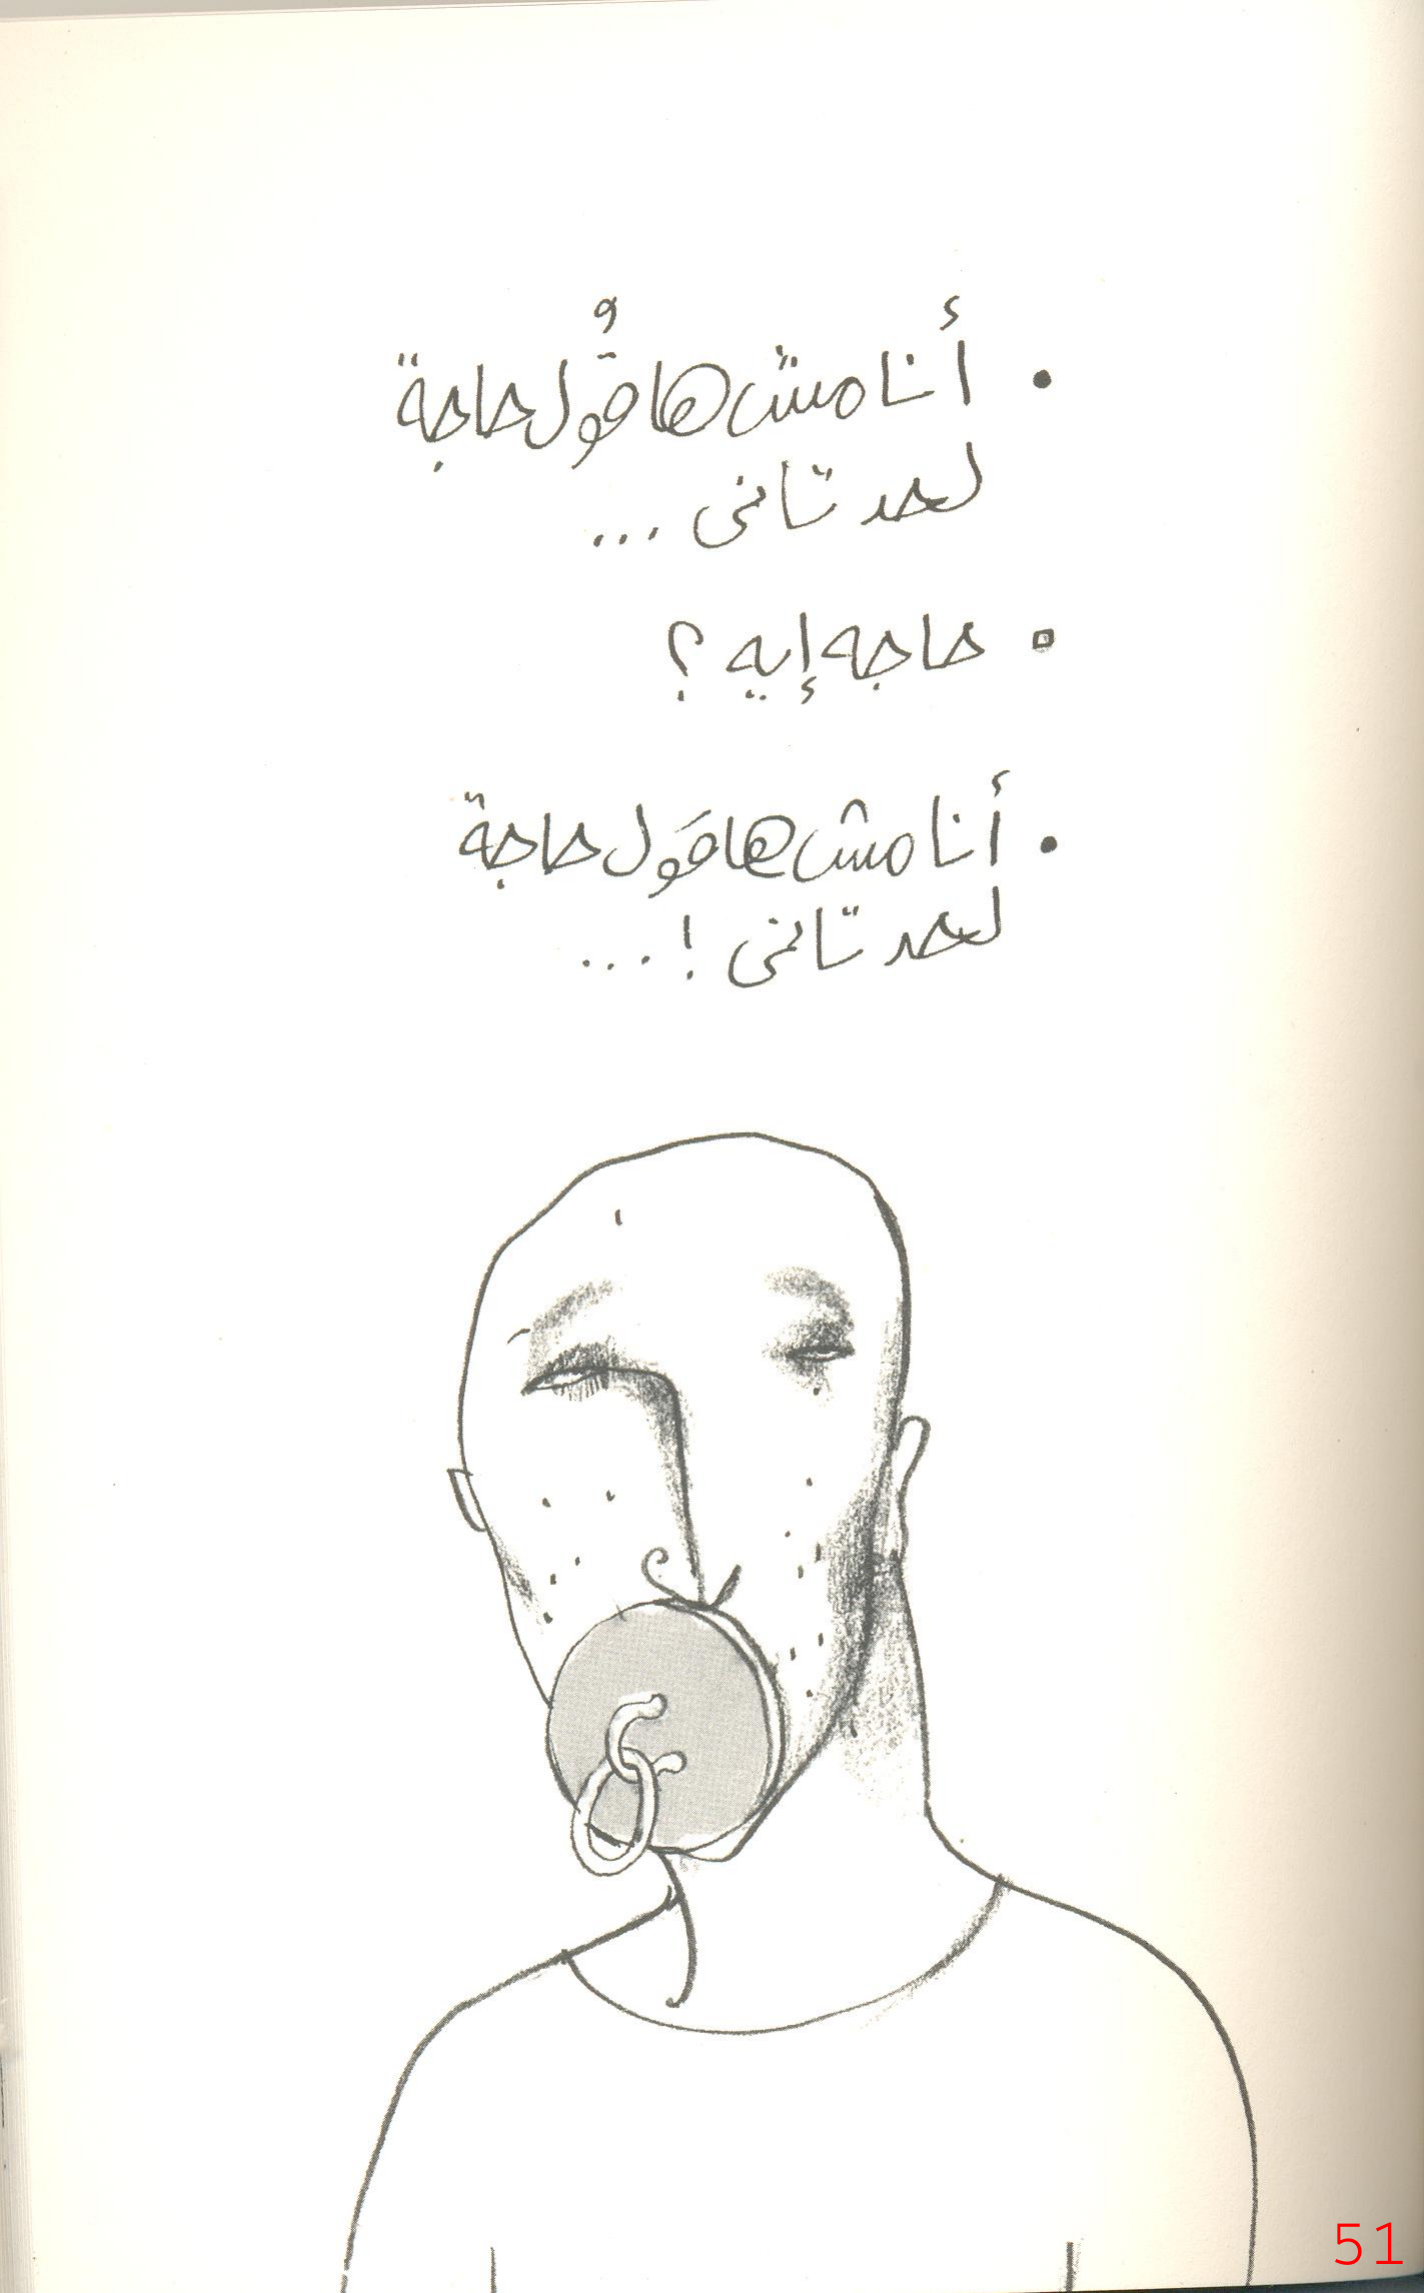 • أنا مش هاقُول حاجة
لحد تانى ...
▫ حاجه إيه ؟
• أنا مش هاقَول حاجة
لحد تانى ! ...
51